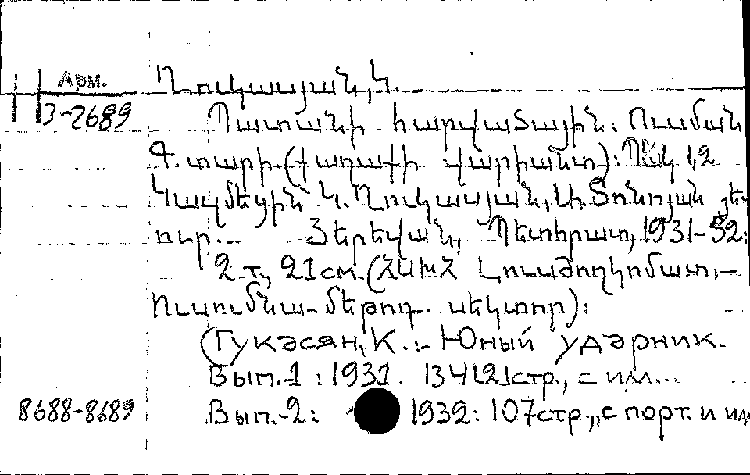 Арм.
3-2689
Ղուկասյան, Կ.
Պատանի հարվածային: Ուսման
Գ. տարի. (քաղաքի վարիանտ): Պրկ 1,2
Կազմեցին Կ. Ղուկասյան,
ուր. — Յերեվան, Պետհրատ, 1931-32:
2 т., 21 см. (ՀՍԽՀ Լուսժողկոմատ,-
Ուսումնա-մեթոդ. սեկտոր):
(Гукасян, К. :- Юный ударник.
Вып. 1 : 1931. 134 [2] стр., с илл...
8688-8689
Вып.-2: 1932: 107 стр., с порт. и ил